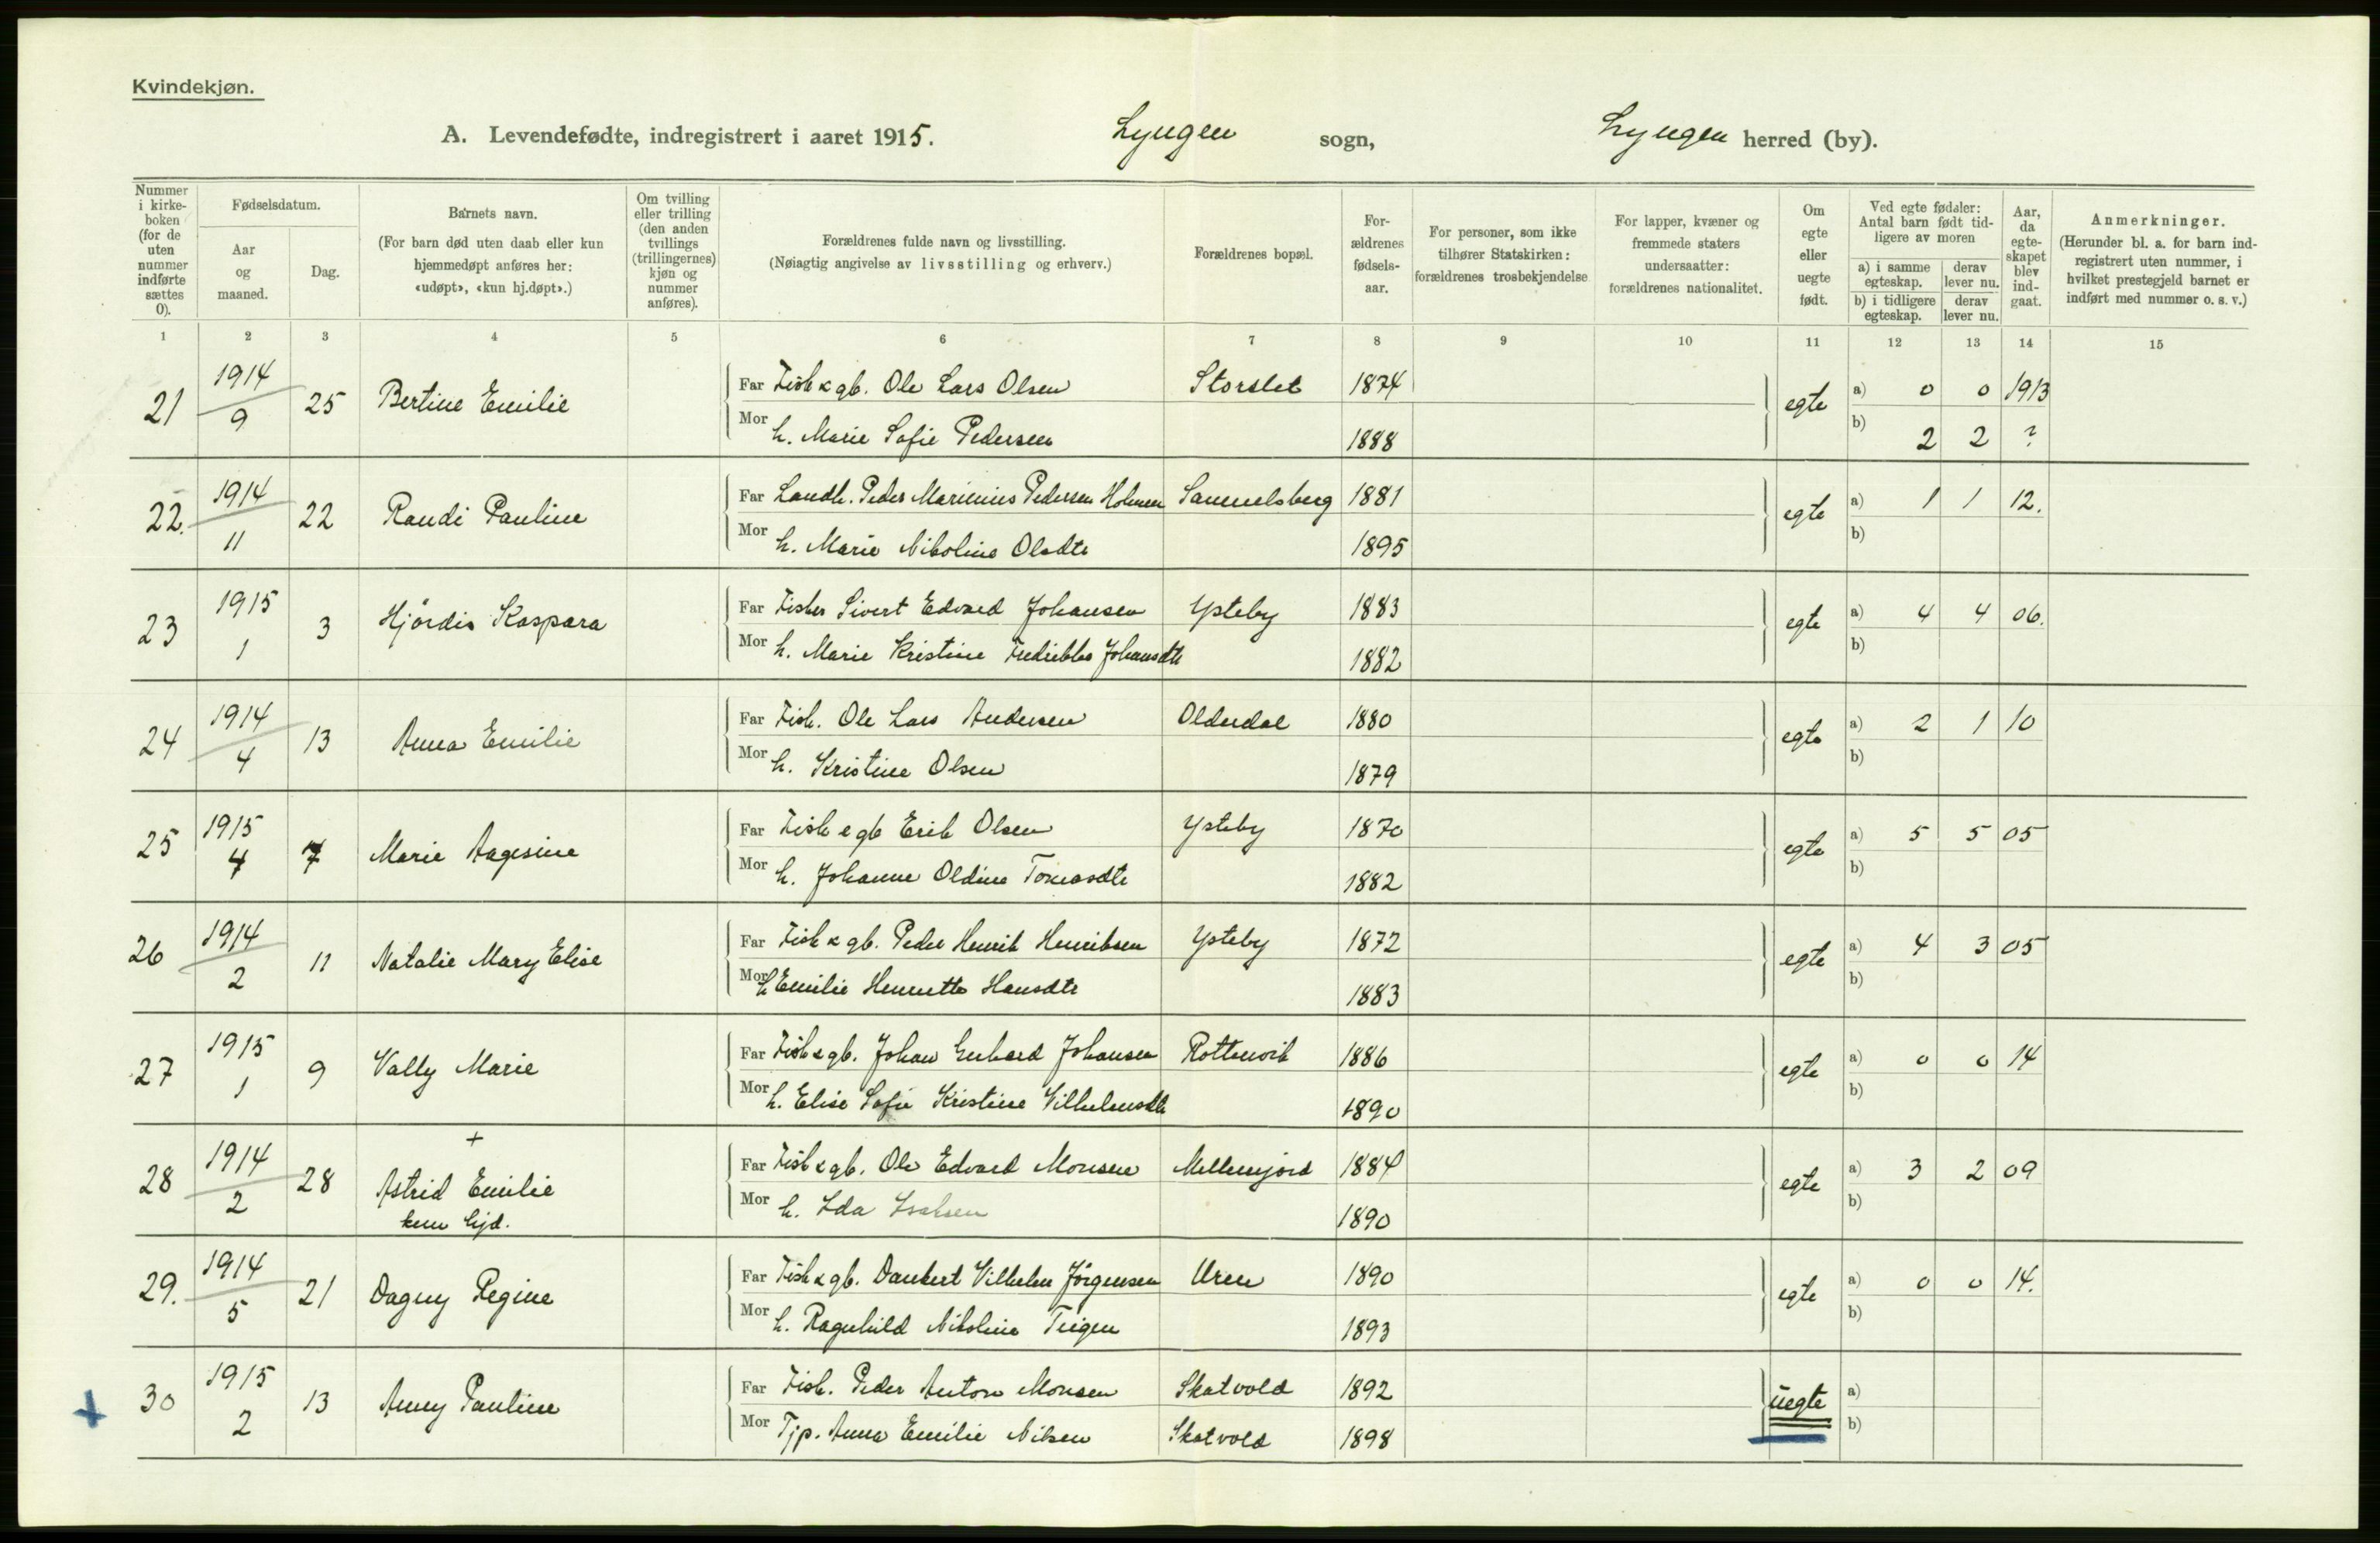 Kvindekjøn.
A. Levendefødte, indregistrert i aaret 1915. Lyngen sogn, Lyngen herred (by).
Nummer i kirkeboken (for de uten nummer indførte sættes 0).
Fødselsdatum.
Aar og maaned.
Dag.
Barnets navn.
(For barn død uten daab eller kun hjemmedøpt anføres her: «udøpt», «kun hj.døpt».)
Om tvilling eller trilling (den anden tvillings (trillingernes) kjøn og nummer anføres).
Forældrenes fulde navn og livsstilling.
(Nøiagtig angivelse av livsstilling og erhverv.)
Forældrenes bopæl.
Forældrenes fødselsaar.
For personer, som ikke tilhører Statskirken: forældrenes trosbekjendelse
For lapper, kvæner og fremmede staters undersaatter: forældrenes nationalitet.
Om egte eller uegte født.
Ved egte fødsler: Antal barn født tidligere av moren
a) i samme egteskap. derav lever nu.
b) i tidligere egteskap. derav lever nu.
Aar, da egteskapet blev indgaat.
Anmerkninger.
(Herunder bl. a. for barn indregistrert uten nummer, i hvilket prestegjeld barnet er indført med nummer o. s. v.)
1 2 3 4 5 6 7 8 9 10 11 12 13 14 15
21 1914 9 25 Bertine Emilie Far Fisk & gb. Ole Lars Olsen Storslet 1874 egte a) 0 0 1913
Mor h. Marie Sofie Pedersen 1888 b) 2 2 ?
22. 1914 11 22 Randi Pauline Far Landh. Peder Marinius Pedersen Holmen Samuelsberg 1881 egte a) 1 1 12.
Mor h. Marie Nikoline Olsdtr 1895 b)
23 1915 1 3 Hjördis Kaspara Far Fisker Sivert Edvard Johansen Ysteby 1883 egte a) 4 4 06.
Mor h. Marie Kristine Fredrikke Johansdtr 1882 b)
24 1914 4 13 Anna Emilie Far Fisk. Ole Lars Andersen Olderdal 1880 egte a) 2 1 10
Mor h. Kristine Olsen 1879 b)
25 1915 4 7 Marie Aagesine Far Fisk & gb Erik Olsen Ysteby 1870 egte a) 5 5 05
Mor h. Johanne Oldine Tomasdtr 1882 b)
26 1914 2 11 Natalie Mary Elise Far Fisk & gb. Peder Henrik Henriksen Ysteby 1872 egte a) 4 3 05
Mor h Emilie Henrette Hansdtr 1883 b)
27 1915 1 9 Vally Marie Far Fisk & gb. Johan Gerhard Johansen Rottenvik 1886 egte a) 0 0 14
Mor h. Elise Sofie Kristine Vilhelmsdtr 1890 b)
+
28 1914 2 28 Astrid Emilie Far Fisk & gb. Ole Edvard Monsen Mellemjord 1884 egte a) 3 2 09
kun hjd. Mor h. Ida Isaksen 1890 b)
29. 1914 5 21 Dagny Regine Far Fisk & gb. Dankert Vilhelm Jörgensen Uren 1890 egte a) 0 0 14.
Mor h. Ragnhild Nikoline Teigen 1893 b)
+ 30 1915 2 13 Anny Pauline Far Fisk. Peder Anton Monsen Skatvold 1892 uegte a)
Mor Tjp. Anna Emilie Nilsen Skatvold 1898 b)